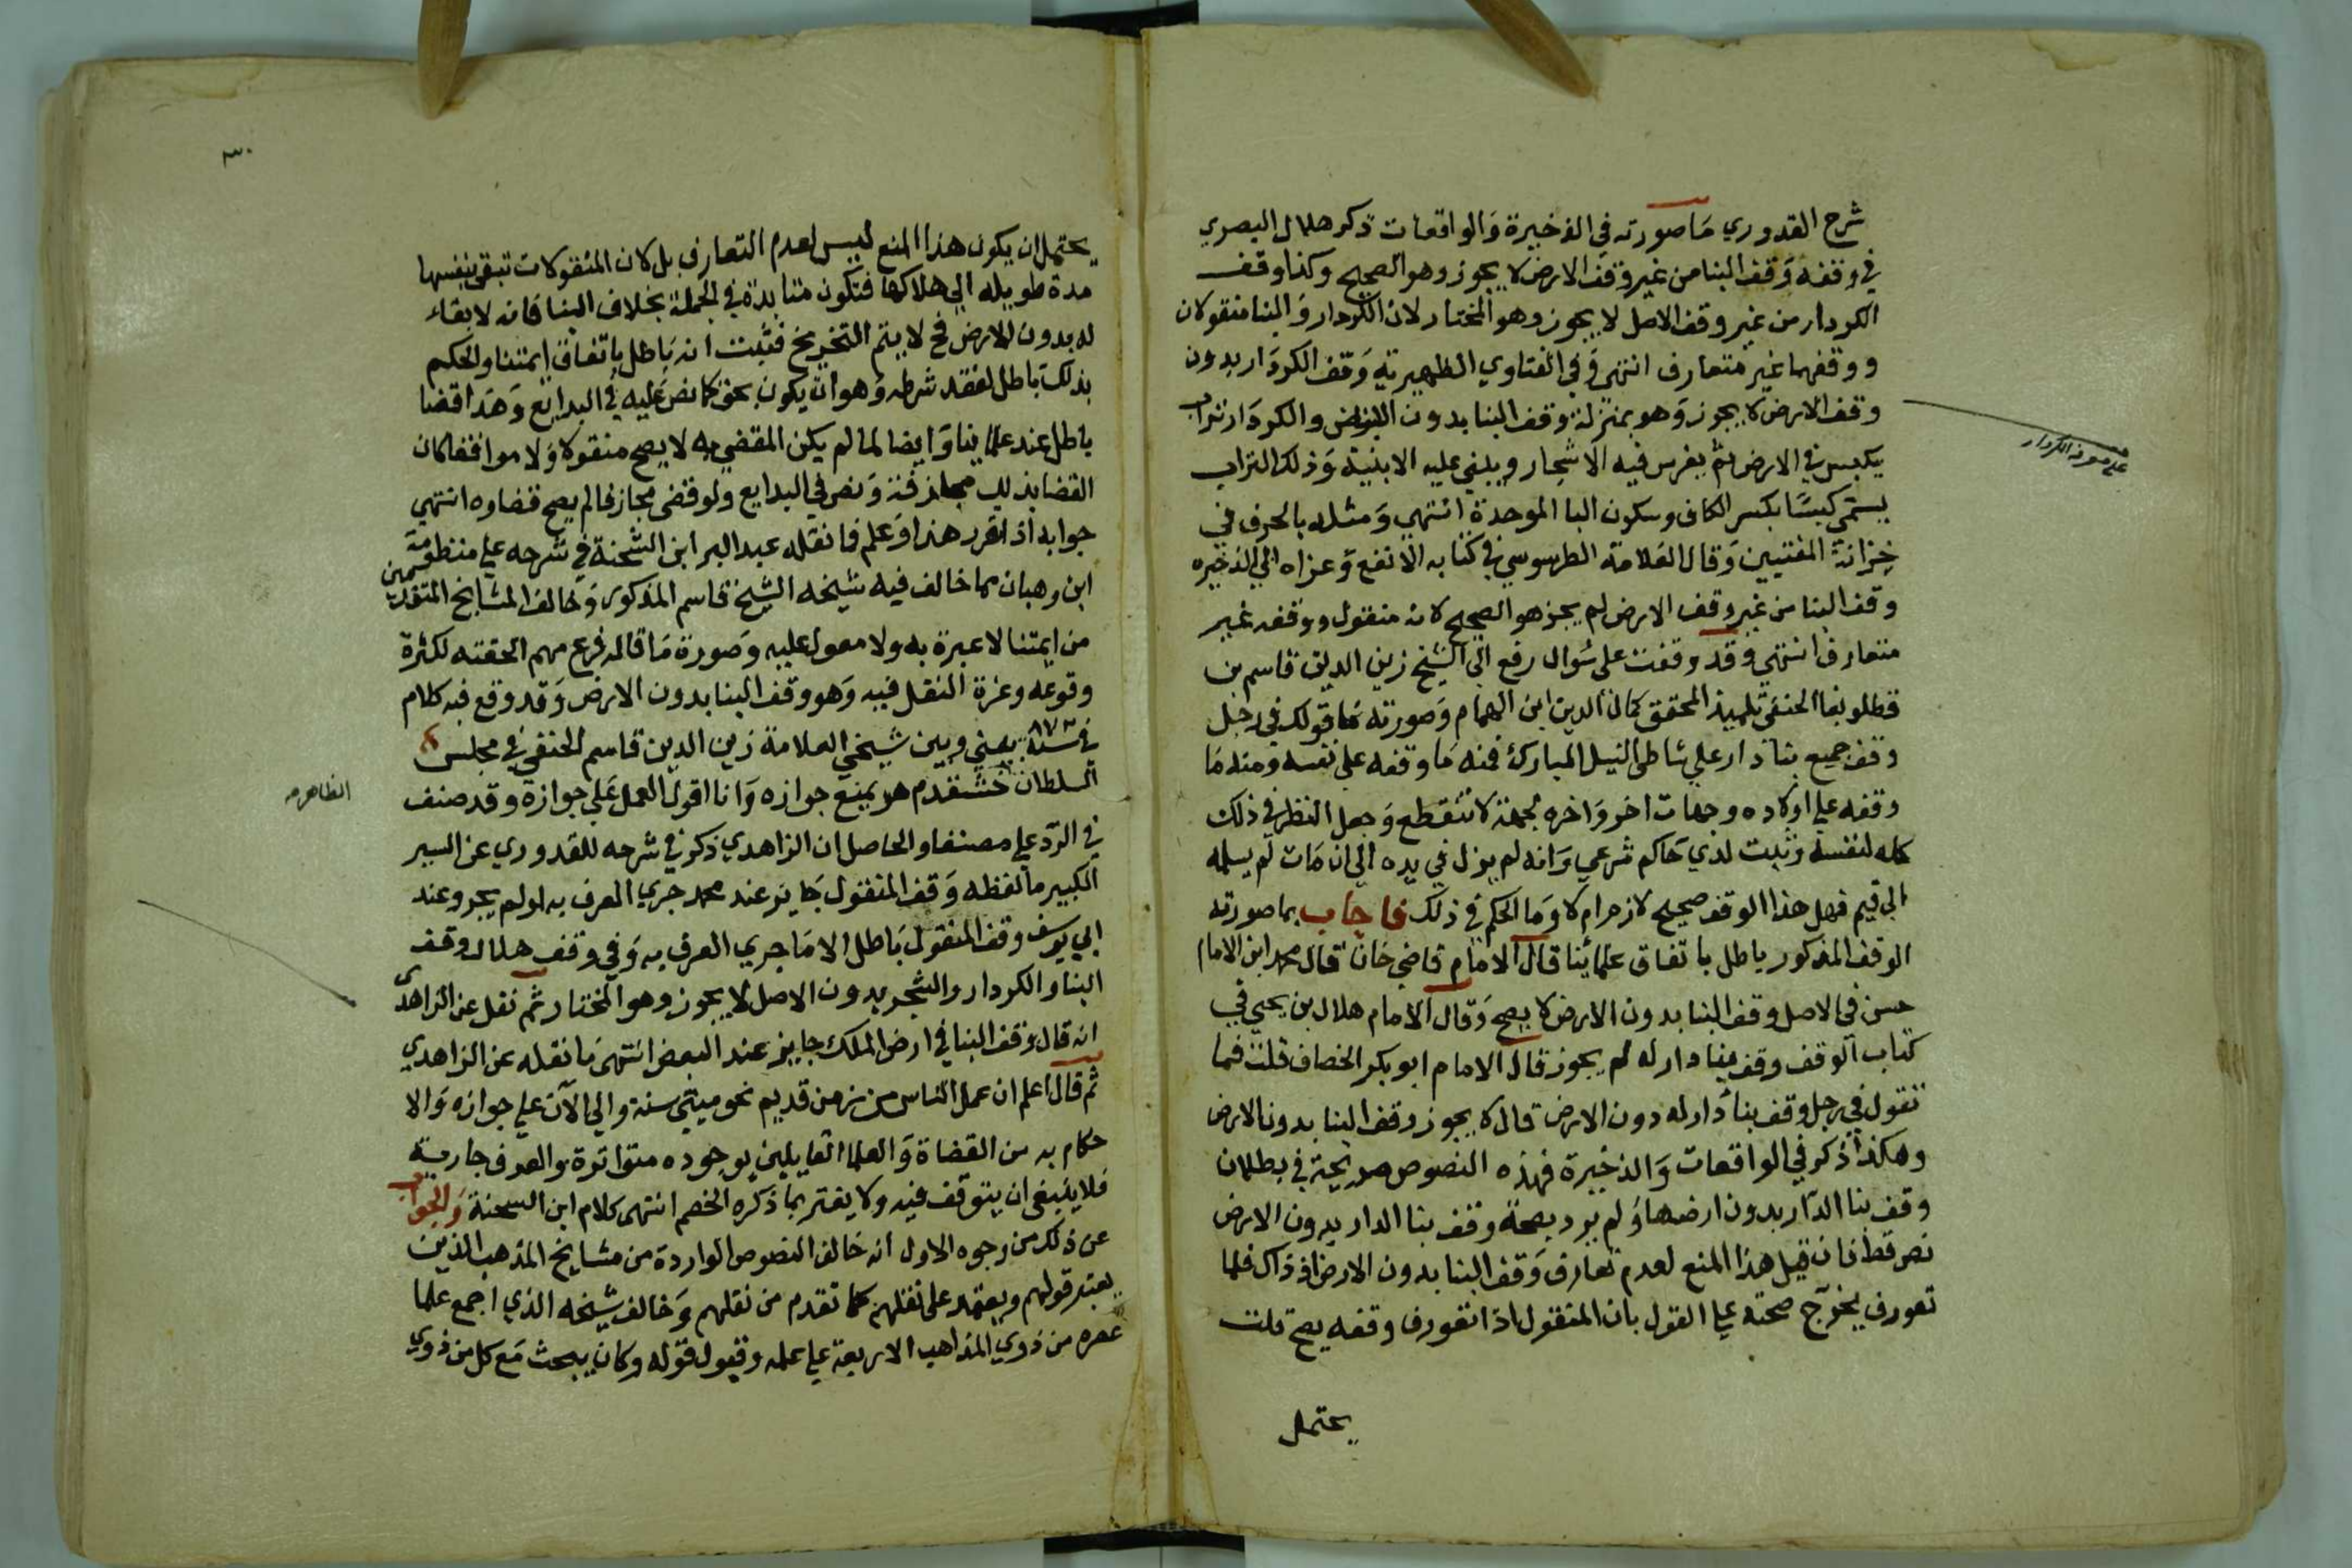 شرح القدوري مَا صورته في الذخيرة وَالواقعات ذكر هلال البصري
في وقفه وَقف البنا من غير وقف الارض لا يجوز وهو الصحيح وكذا وقف
الكردار من غير وقف الاصل لا يجوز وهو المختار لان الكردار وَالبنا منقولان
ووقفهما غير متعارف انتهى وَفي الفتاوي الظهيرية وَقف الكردَار بدون
وقف الارض لا يجوز وَهو بمنزلة وقف البنا بدون الارض والكردَار تراب
يكبس في الارض ثم يغرس فيه الاشجار ويبنى عليه الابنية وَذلك التراب
يسمى كبسًا بكسر الكاف وسكون البا الموحدة انتهي وَمثله بالحرف في
خزانة المفتيين وَقال العَلامة الطرسوسي في كتابه الانفع وَعزاه الي الذخيره
وقف البنا من غير وقف الارض لم يجز هو الصحيح لانه منقول ووقفه غير
متعارف انتهي وقد وقفت على سُوال رفع الي الشيخ زين الدين قاسم بن
قطلوبغا الحنفي تلميذ المحقق كمال الدين ابن الهمام وَصورته مَا قولك في رجل
وقف جميع بنا دار علي شاطى النيل المبارك فمنه مَا وقفه على نفسه ومنه مَا
وقفه علي اولاده وجهات اخر وَاخره لجهة لا تنقطع وَجعل النظر في ذلك
كله لنفسه وثبت لدي حَاكم شرعي وَانه لم يزل في يده الي ان مَات لم يسلمه
الي قيم فهل هذا الوقف صحيح لازم ام لا وَما الحكم في ذلك فاجاب بما صورته
الوقف المذكور باطل باتفاق علمائنا قال الامام قاضي خان قال محمد ابن الامام
حسن في الاصل وقف البنا بدون الارض لا يصح وَقال الامام هلال بن يحيي في
كتاب الوقف وقف بنا دار له لم يجوز قال الامام ابو بكر الخصاف قلت فما
تقول في رجل وقف بنا دار له دون الارض قال لا يجوز وقف البنا بدون الارض
وهكذا ذكر في الواقعات وَالذخيرة فهذه النصوص صريحة في بطلان
وقف بنا الدار بدون ارضها وَلم يرد بصحة وقف بنا الدار بدون الارض
نص قط فان قيل هذا المنع لعدم تعارف وَقف البنا بدون الارض اذ ذاك فلما
تعورف يخرّج صحته علي القول بان المنقول اذا تعورف وقفه يصح قلت
يحتمل
يحتمل ان يكون هذا المنع ليس لعدم التعارف بل لان المنقولات تبقى بنفسها
مدة طويله الي هلاكها فتكون متابدة في الجملة بخلاف البنا فانه لا بقاء
له بدون الارض فح لا يتم التخريج فثبت انه بَاطل باتفاق ايمتنا والحكم
بذلك بَاطل لفقد شرطه وَهو ان يكون بحق كما نص عَليه في البدايع وَهَذا قضا
باطل عند علماينا وَايضا لما لم يكن المقضي به لا يصح منقولا وَلا موافقا كان
القضا بذلك مجازفة وَنص في البدايع ولو قضى مجازفا لم يصح قضاوه انتهي
جوابه اذا تقرر هذا وَعلم فما نقله عبد البر ابن الشحنة في شرحه علي منظومة
ابن وهبان مما خالف فيه شيخه الشيخ قاسم المذكور وَخالف المشايخ المتقدمين
من ايمتنا لا عبرة به ولا معول عليه وَصورة مَا قاله فرع مهم الحقته لكثرة
وقوعه وعزة النقل فيه وَهو وقف البنا بدون الارض وَقد وقع فيه كلام
في سنة ٨٧٢ بيني وبين شيخي العلامة زين الدين قاسم الحنفي في مجلس
السلطان خشقدم هو يمنع جوازه وَانا اقول العمل عَلي جوازة وقد صنف
الظاهر
في الرّد علي مصنفا والحاصل ان الزاهدي ذكر في شرحه للقدوري عن السير
الكبير ما لفظه وَقف المنقول جَايز عند محمد جري العرف به او لم يجر وعند
ابي يوسف وقف المنقول بَاطل الا مَا جري العرف به وَفي وقف هلال وقف
البنا والكردار والشجر بدون الاصل لا يجوز وهو المختار ثم نقل عن الزاهدى
انه قال وَقف البنا في ارض الملك جايز عند البعض انتهى مَا نقله عن الزاهدي
ثم قال اعلم ان عمل الناس من زمن قديم نحو ميتي سنة والي الآن علي جوازه وَالا
حكام به من القضاة وَالعلما القايلين بوجوده متواترة والعرف جارية
فلا ينبغي ان يتوقف فيه ولا يغتر بما ذكره الخصم انتهى كلام ابن الشحنة وَالجواب
عن ذلك من وجوه الاول انه خَالف النصوص الواردة من مشايخ المذهب الذين
يعتبر قولهم ويعتمد على نقلهم كما تقدم من نقلهم وَخالف شيخه الذي اجمع علما
عصره من ذوي المذاهب الاربعة علي علمه وقبول قوله وكان يبحث مَع كل من ذوي